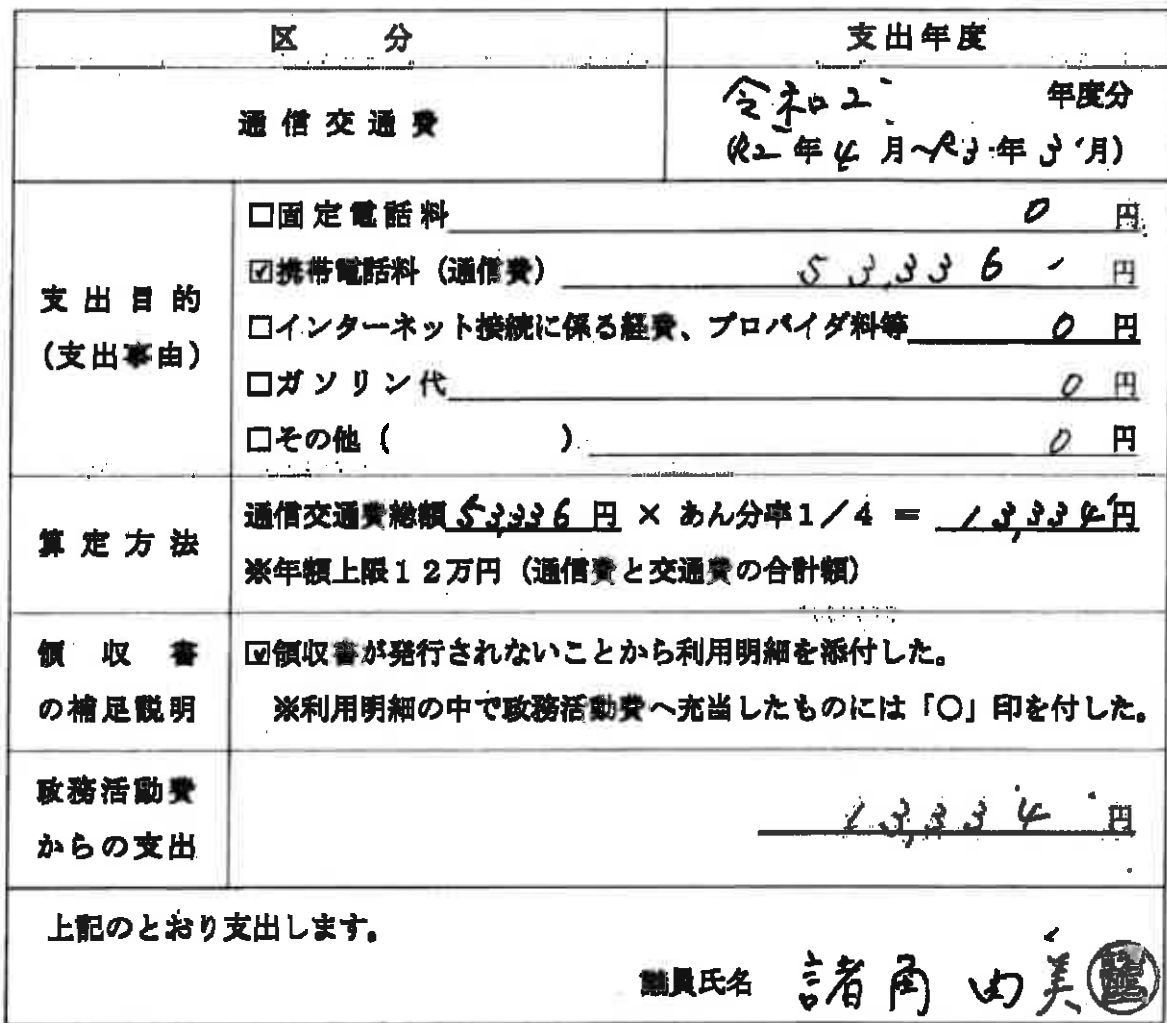 区　分　支出年度
通信交通費　令和2　年度分
(R2年4月～R3年3月)
支出目的
(支出事由)
□固定電話料 0 円
☑携帯電話料（通信費） 53,336 円
□インターネット接続に係る経費、プロバイダ料等 0 円
□ガソリン代 0 円
□その他（　　　） 0 円
算定方法
通信交通費総額 53,336 円 × あん分率1／4 ＝ 13,334円
※年額上限12万円（通信費と交通費の合計額）
領収書
の補足説明
☑領収書が発行されないことから利用明細を添付した。
※利用明細の中で政務活動費へ充当したものには「○」印を付した。
政務活動費
からの支出
13,334 円
上記のとおり支出します。
議員氏名 諸角 由美